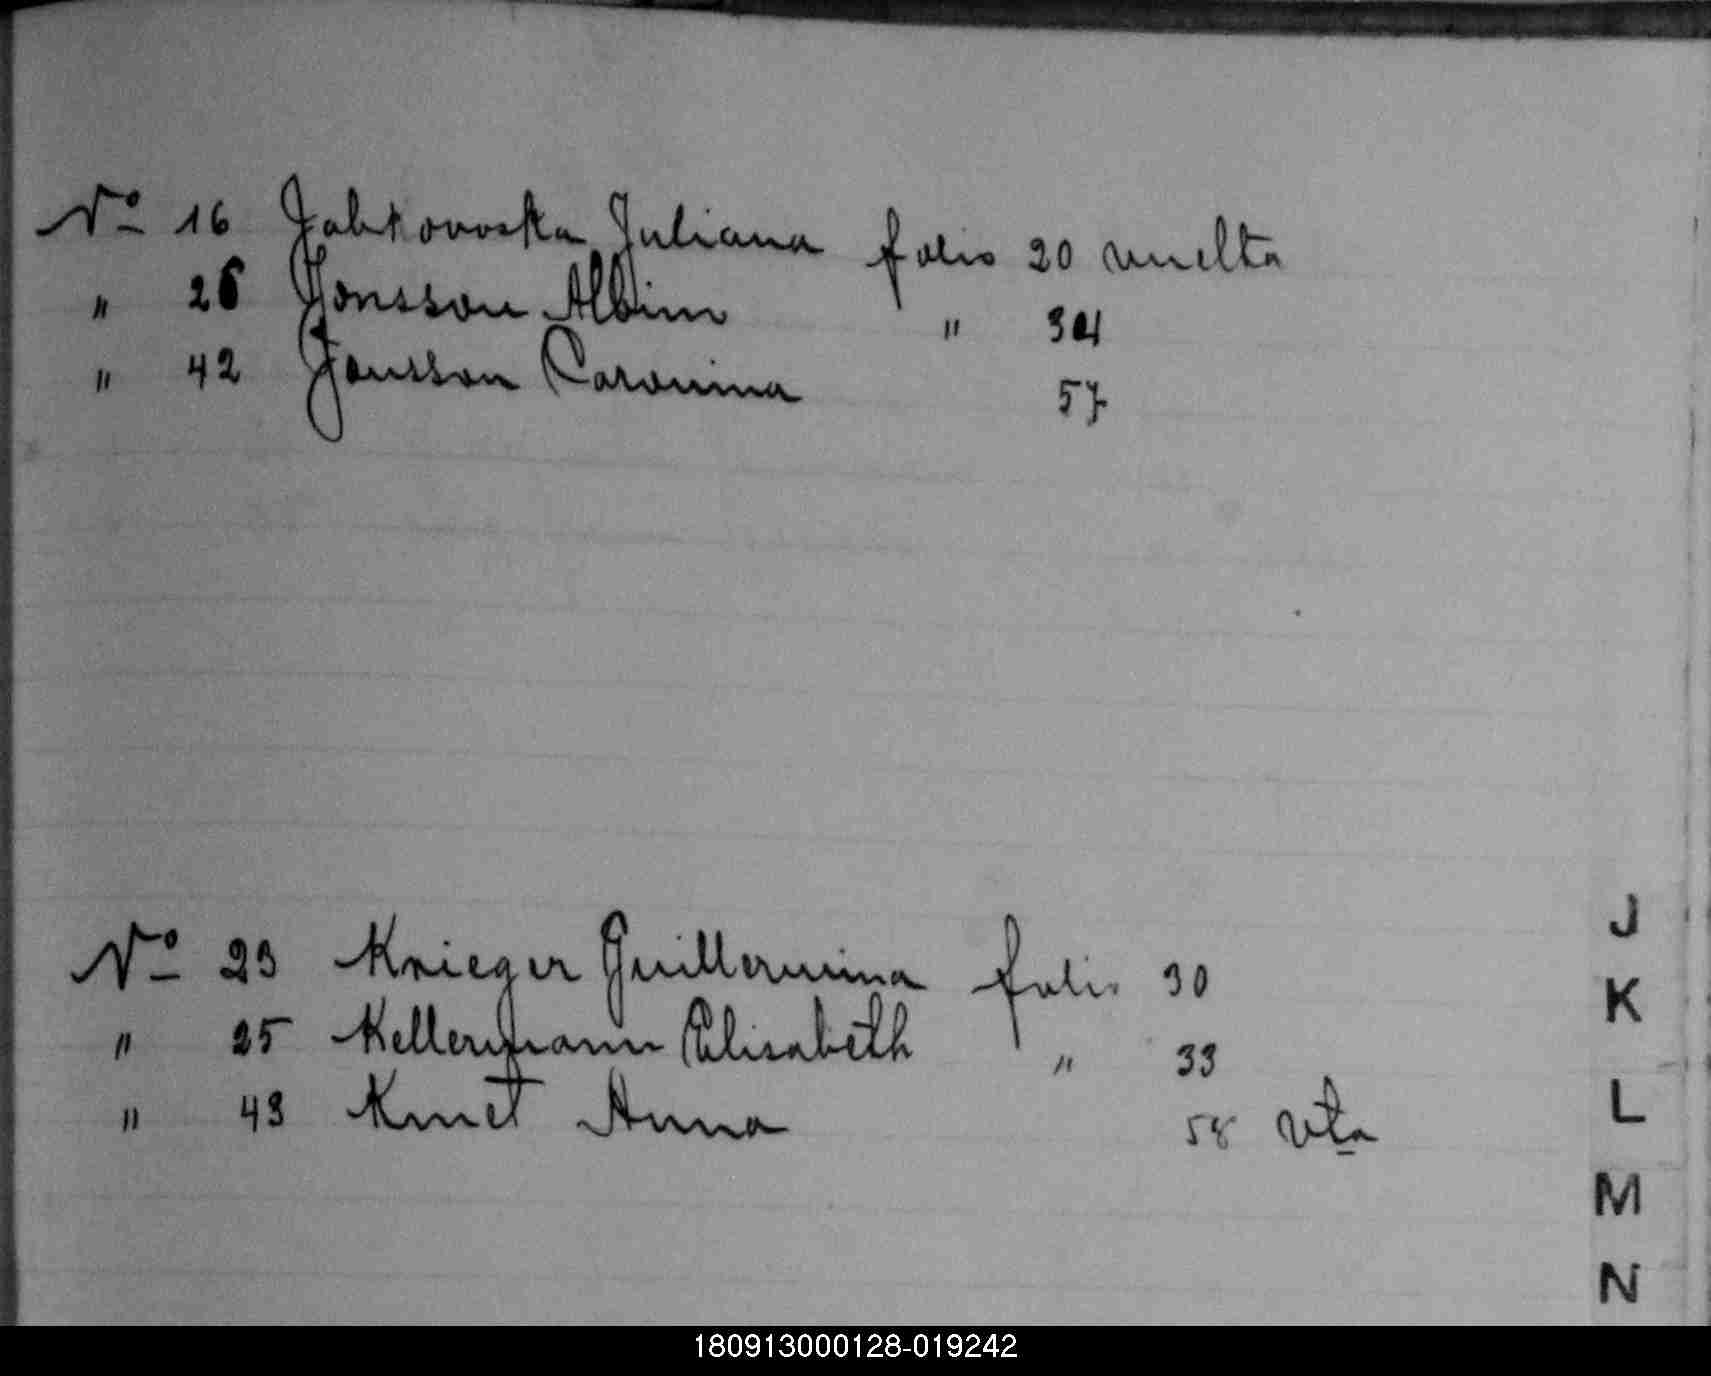 Nº 16 Jabkowska Juliana folio 20 vuelta
" 26 Jonsson Albin " 34
" 42 Jansson Caronina 57
J
Nº 23 Krieger Guillermina folio 30
K
" 25 Kellermann Elisabeth " 33
" 43 Kmet Anna 58 vta
L
M
N
180913000128-019242